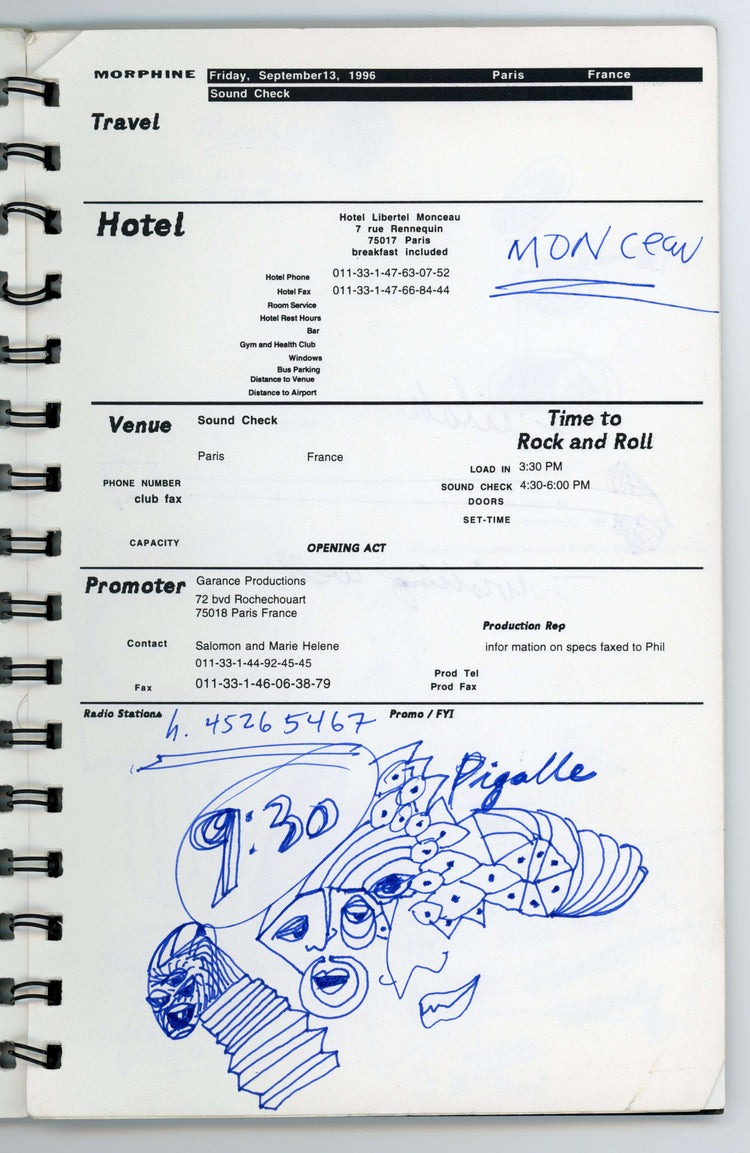 MORPHINE Friday, September13, 1996 Paris France
Sound Check
Travel
Hotel
Hotel Libertel Monceau
7 rue Rennequin
75017 Paris
breakfast included
MONCeau
Hotel Phone 011-33-1-47-63-07-52
Hotel Fax 011-33-1-47-66-84-44
Room Service
Hotel Rest Hours
Bar
Gym and Health Club
Windows
Bus Parking
Distance to Venue
Distance to Airport
Venue Sound Check
Time to
Rock and Roll
Paris France
LOAD IN 3:30 PM
PHONE NUMBER
SOUND CHECK 4:30-6:00 PM
club fax
DOORS
SET-TIME
CAPACITY
OPENING ACT
Promoter Garance Productions
72 bvd Rochechouart
75018 Paris France
Production Rep
Contact Salomon and Marie Helene
infor mation on specs faxed to Phil
011-33-1-44-92-45-45
Prod Tel
Fax 011-33-1-46-06-38-79
Prod Fax
Radio Stations h. 45265467 Promo / FYI
Pigalle
9:30